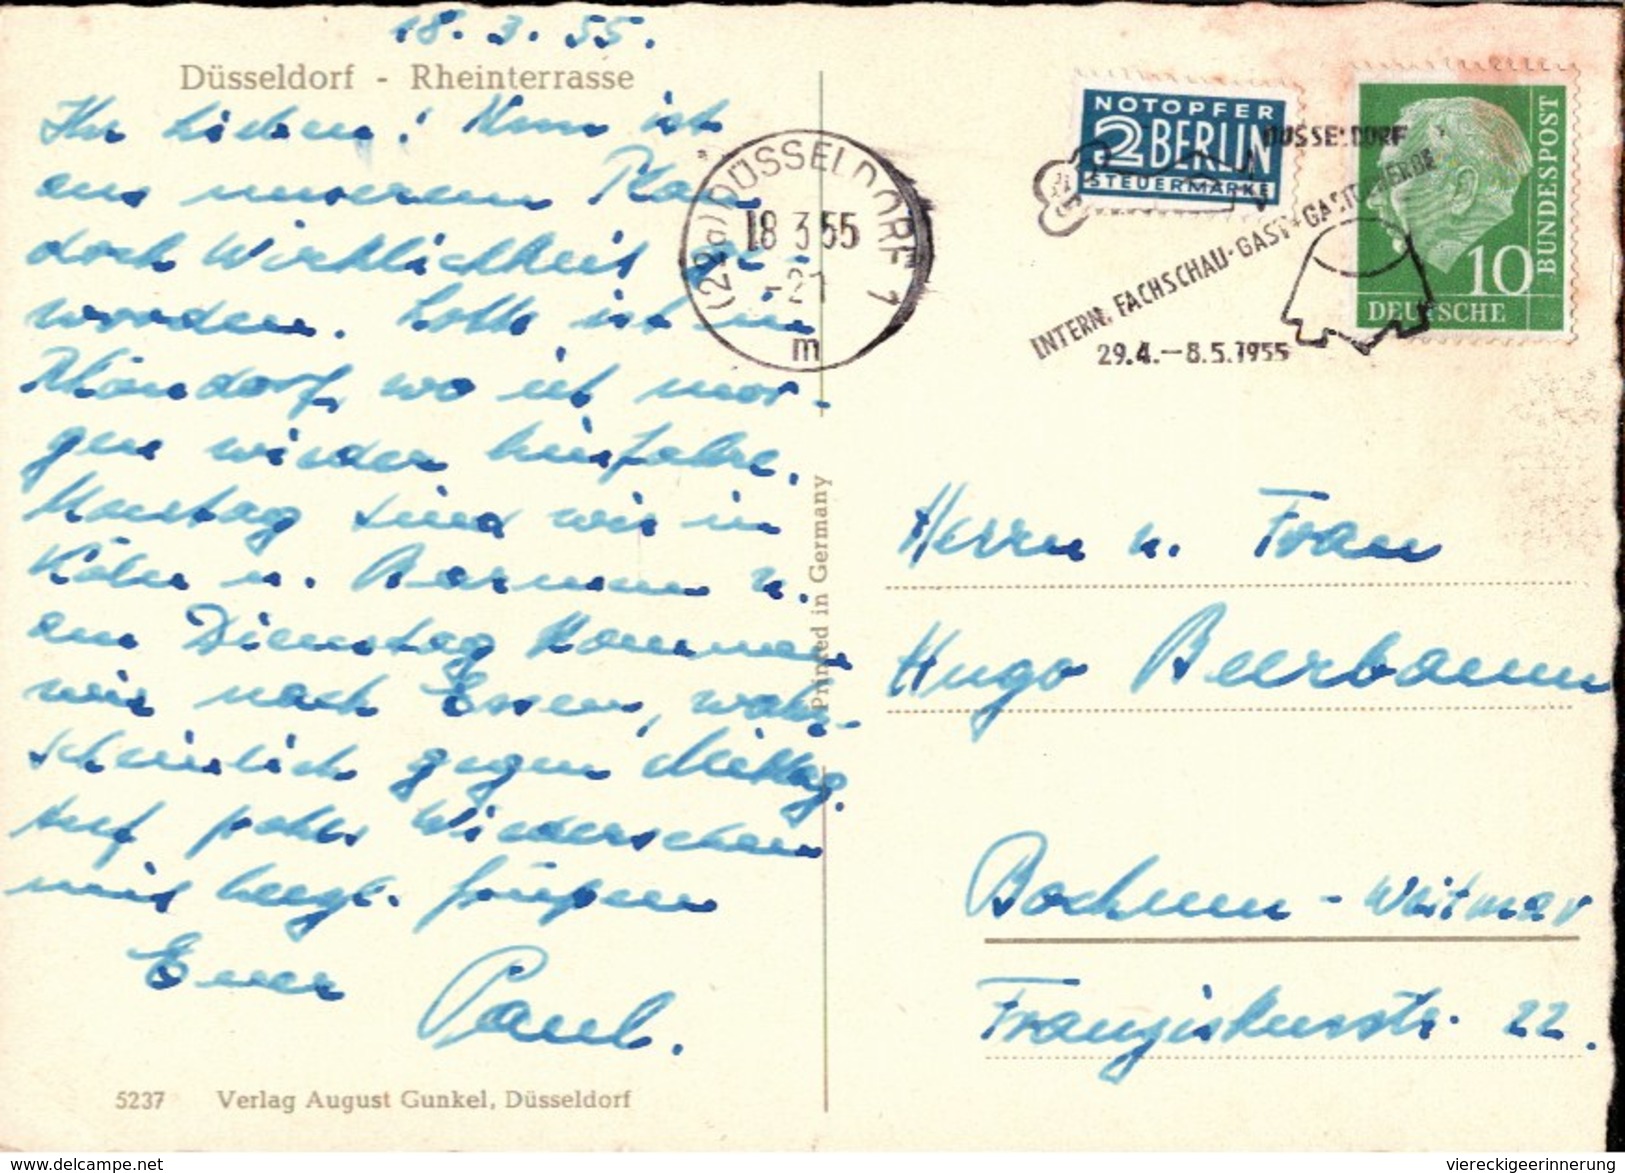 18. 3. 55.
Düsseldorf - Rheinterrasse
Ihr Lieben! Nun ist
aus unserem Plan
doch Wirklichkeit ge-
worden. Lotte ist in
Rhöndorf, wo ich mor-
gen wieder hinfahre.
Montag sind wir in
Köln u. Barmen u.
am Dienstag kommen
wir nach Essen, wahr-
scheinlich gegen Mittag.
Auf frohes Wiedersehen
mit herzl. Grüßen
Euer Paul.
5237 Verlag August Gunkel, Düsseldorf
Printed in Germany
(22a) DÜSSELDORF 1
18.3.55
-21
m
NOTOPFER
2 BERLIN
STEUERMARKE
DÜSSELDORF
INTERN. FACHSCHAU·GAST·GASTGEWERBE
29.4.—8.5.1955
10
DEUTSCHE
BUNDESPOST
Herrn u. Frau
Hugo Beerbaum
Bochum - Weitmar
Franziskusstr. 22.
delcampe.net
viereckigeerinnerung